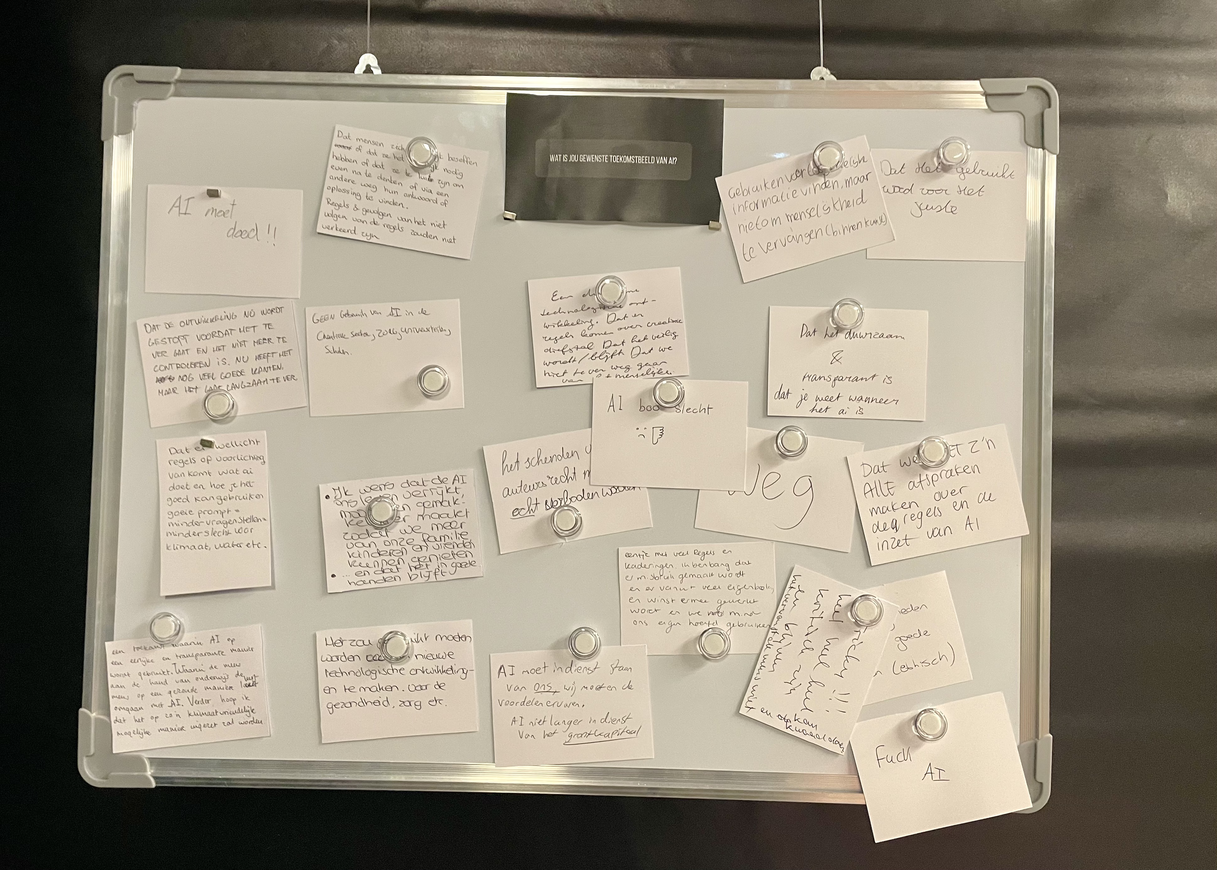 WAT IS JOU GEWENSTE TOEKOMSTBEELD VAN AI?
AI moet
dood!!
Dat mensen beseffen
of dat ze het nodig
hebben of dat ze zijn om
even na te denken of via een
andere weg hun antwoord of
oplossing te vinden.
Regels & gevolgen van het niet
volgen van de regels zouden niet
verkeerd zijn
Gebruiken voor
informatie vinden, maar
niet om menselijkheid
te vervangen (bijv. in kunst)
Dat het gebruikt
word voor het
juiste
DAT DE ONTWIKKELING NÚ WORDT
GESTOPT VOORDAT HET TE
VER GAAT EN HET NIET MEER TE
CONTROLEREN IS. NU HEEFT HET
NOG VEEL GOEDE KANTEN.
MAAR HET GAAT LANGZAAM TE VER.
GEEN Gebruik van AI in de
Creatieve sector, Zorg, universiteiten,
Scholen.
Een
technologische ont-
wikkeling. Dat er
regels komen over creatieve
diefstal. Dat het veilig
wordt/blijft. Dat we
niet te ver weg gaan
van menselijke
Dat het duurzaam
&
transparant is
dat je weet wanneer
het ai is
AI boo slecht
:(
Dat er wellicht
regels op voorlichting
van komt wat ai
doet en hoe je het
goed kan gebruiken
goeie prompt =
minder vragen stellen =
minder slecht voor
klimaat, water etc.
• Ik wens dat de AI
ons leven verrijkt
gemak!
maakt
zodat we meer
van onze familie
kinderen en vrienden
kunnen genieten
• ... en dat het in goede
handen blijft
het schenden
auteursrecht
echt verboden worden
Weg
Dat we MET Z'N
ALLE afspraken
maken over
de regels en de
inzet van AI
eentje met veel regels en
kaderingen. Ik ben bang dat
er misbruik gemaakt wordt
en er vanuit veel eigenbelang
en winst ermee gewerkt
wordt en we minder
ons eigen hoofd gebruiken
heel heel heel
kritisch zijn
blijven
en
goede
(ethisch)
een toekomst waarin AI op
een eerlijke en transparante manier
wordt gebruikt. Waarin de mens
aan de hand van onderwijs
mens op een gezonde manier
omgaan met AI. Verder hoop ik
dat het op zo'n klimaatvriendelijk
mogelijke manier ingezet zal worden
Het zou moeten
worden nieuwe
technologische ontwikkeling-
en te maken. Voor de
gezondheid, zorg etc.
AI moet in dienst staan
van ons, wij moeten de
voordelen ervaren.
AI niet langer in dienst
van het grootkapitaal
Fuck
AI